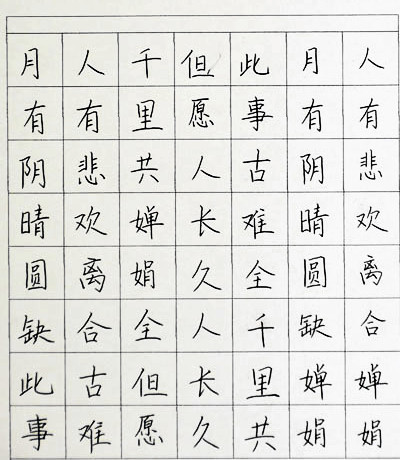 人有悲欢离合婵娟
月有阴晴圆缺婵娟
此事古难全千里共
但愿人长久人长久
千里共婵娟全但愿
人有悲欢离合古难
月有阴晴圆缺此事